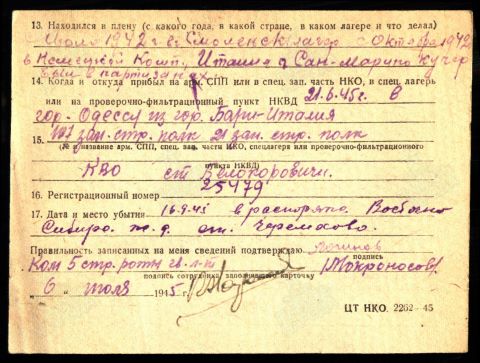 13. Находился в плену (с какого года, в какой стране, в каком лагере и что делал)
Июля 1942 г. в г. Смоленск лагер – Октября 1942
в Немецкой Комп. Италия г Сан-Марино кучер
был в партизанах
14. Когда и откуда прибыл на арм. СПП или в спец. зап. часть НКО, в спец. лагерь
или на проверочно-фильтрационный пункт НКВД 21.6.45г. в
гор. Одессу из гор. Бари-Италия
15. зап. стр. полк 21 зап. стр. полк
(№ название арм. СПП, спец. зап. части НКО, спецлагеря или проверочно-фильтрационного
пункта НКВД)
КВО ст Белокоровичи.
16. Регистрационный номер 25479
17. Дата и место убытия 16.9.45 в распоряж. Восточно
Сибирс. ж. д. ст. Черемхово.
Правильность записанных на меня сведений подтверждаю Логинов
подпись
Ком 5 стр. роты ст. л-т Мокроносов
подпись сотрудника, заполнявшего карточку
6 июля 1945 г.
ЦТ НКО. 2262–45